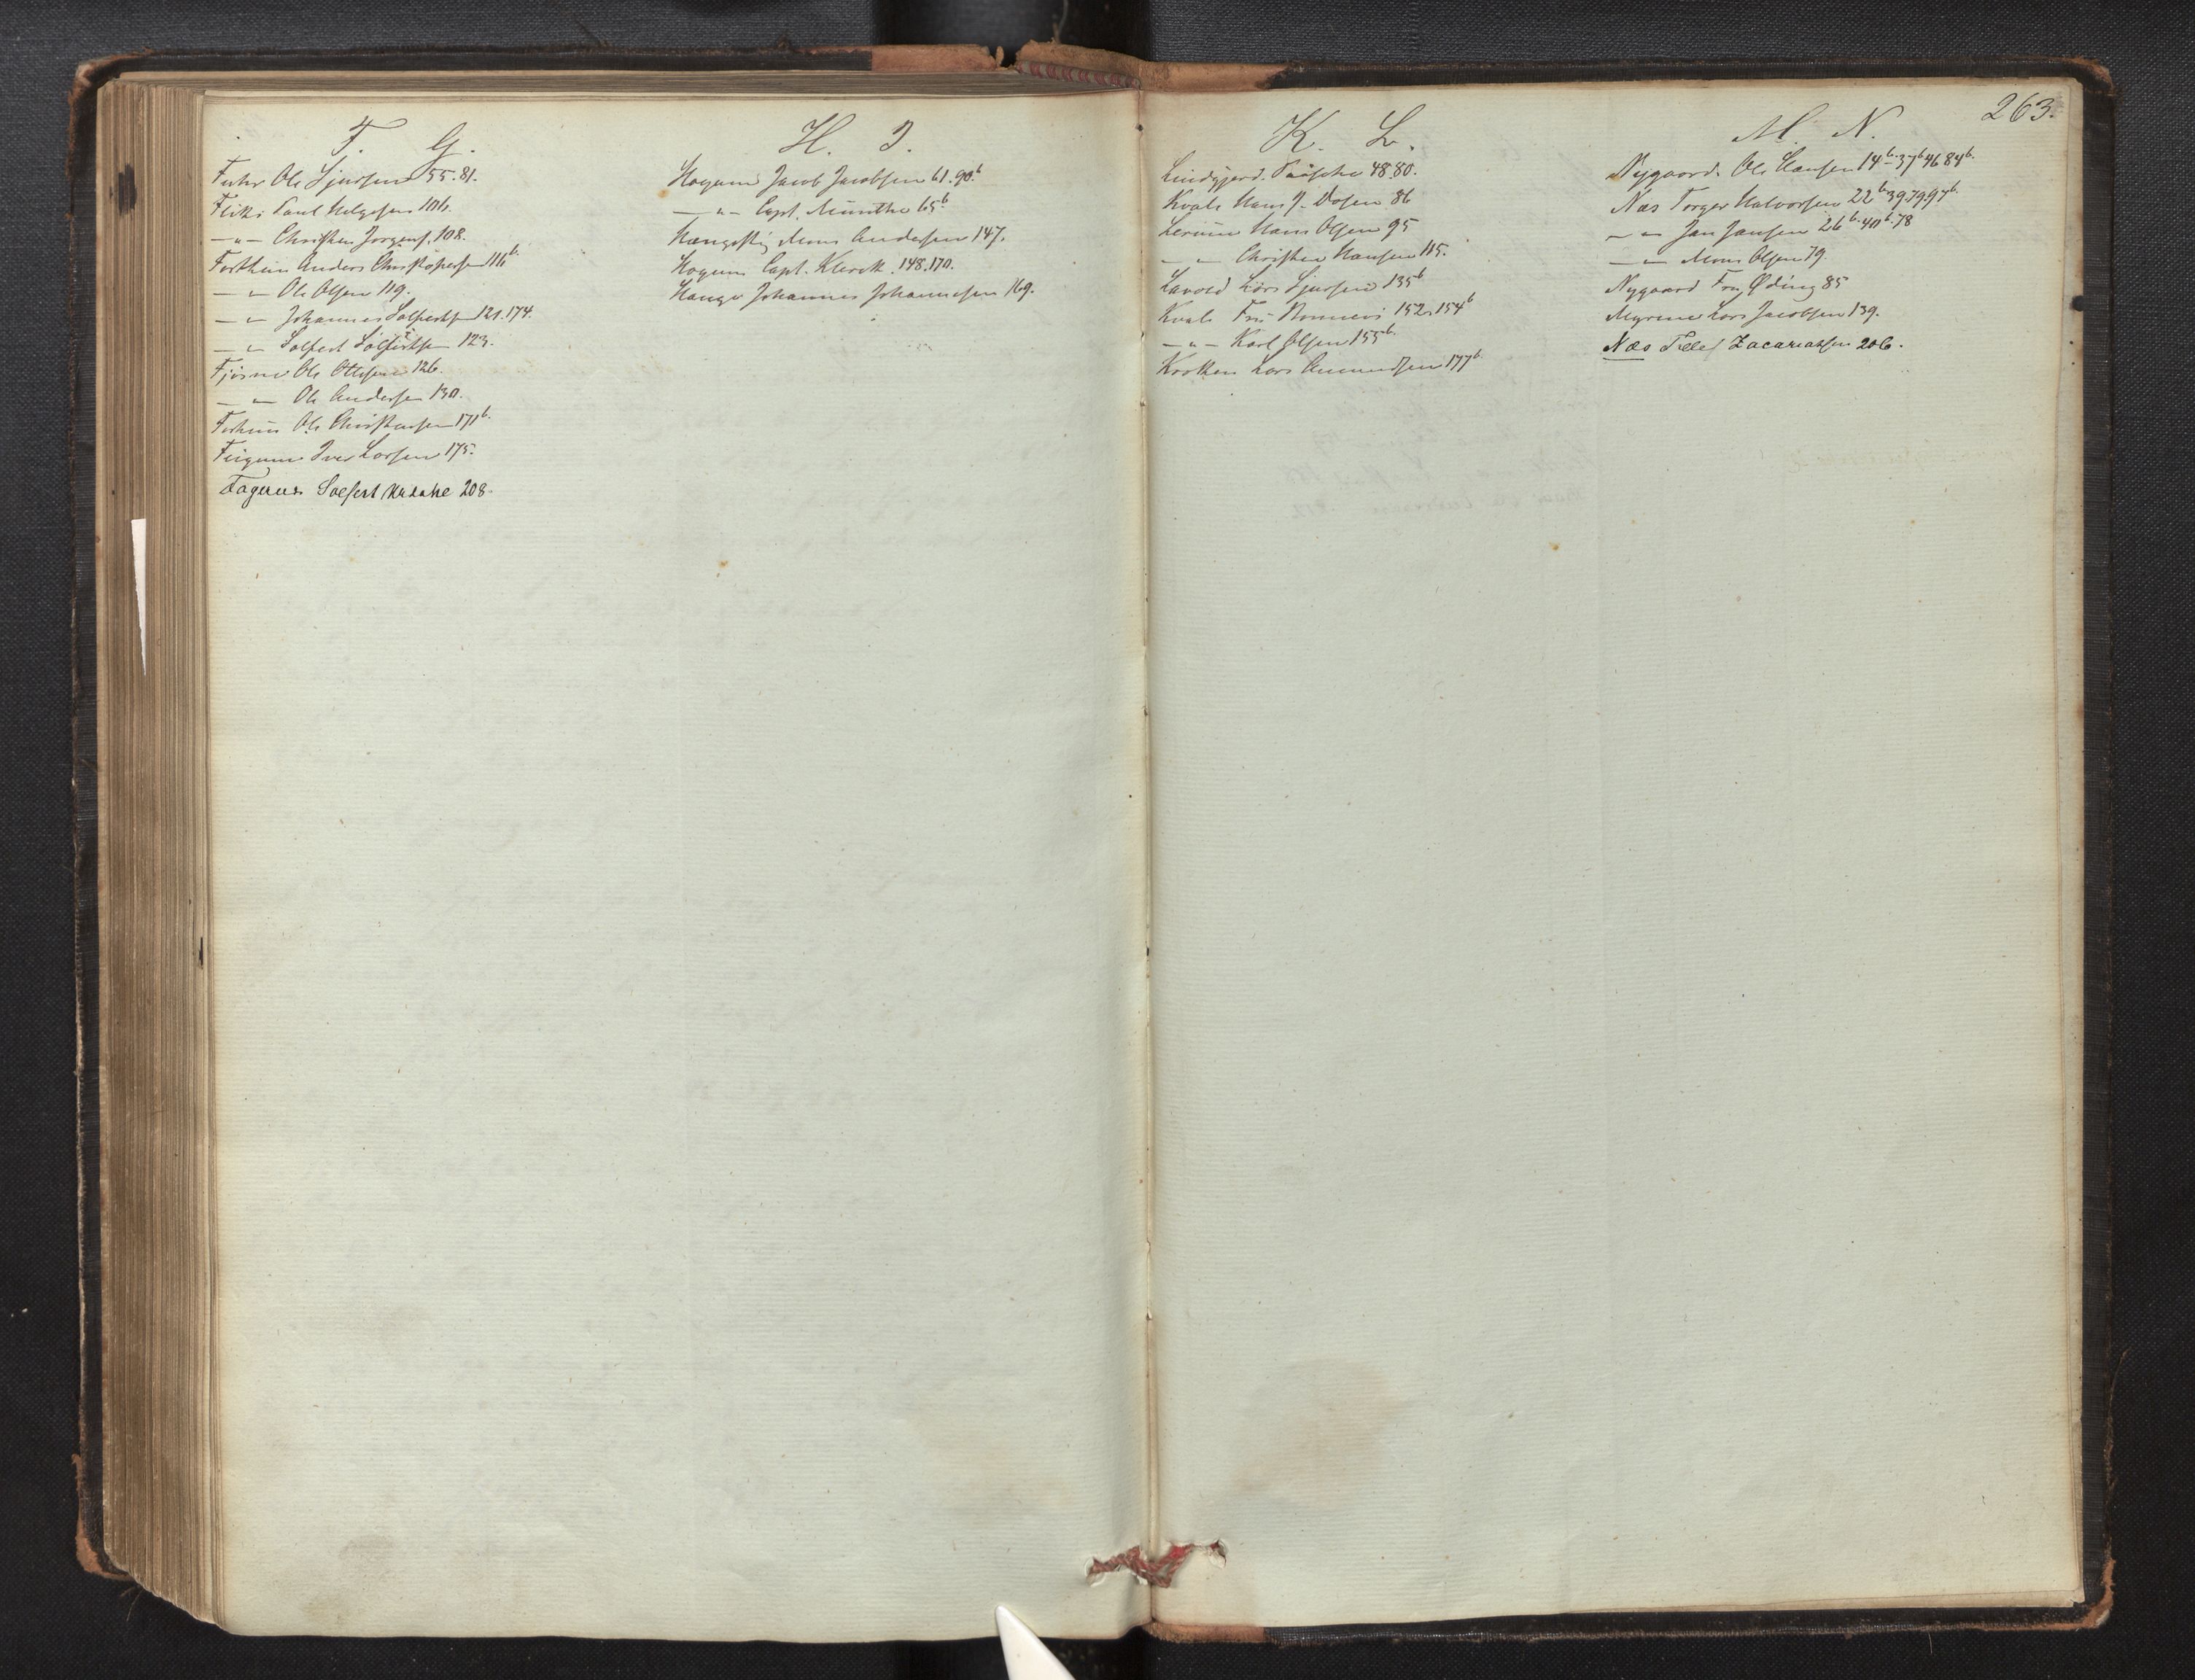 F. G.
Fuhr Ole Sjursen 55. 81.
Feiki Paul Helgesen 106.
—"— Christen Jørgens. 108.
Forthun Anders Christophersen 116b.
—"— Ole Olsen 119.
—"— Johannes Solfestsen 121. 174.
—"— Solfest Solfestsen 123.
Fjøsne Ole Ottesen 126.
—"— Ole Andersen 130.
Forthun Ole Christensen 171b.
Feigum Iver Larsen 175.
Fagernes Soefest 208.
H. I.
Haugum Jacob Jacobsen 61. 90b
—"— Capt. Munthe 65b
Mons Andersen 147.
Capt. Klerck. 148. 170.
Hauge Johannes Johannesen 169.
K. L.
Lindgjerd. 48. 80.
Kvale Hans J. 86
Lerum Hans Olsen 95
—"— Christen Hansen 115.
Lavold Lars Sjursen 135b
Kvale Fru 152. 154b
—"— Karl Olsen 155b.
Krokken Lars Amundsen 177b.
M. N.
263.
Nygaard. Ole Hansen 14b. 37b 46 84b.
Næs Torger Halvorsen 22b 39. 79. 97b.
—"— Jan Jansen 26b. 40b. 78
—"— Mons Olsen 79.
Nygaard Fru Øding 85
Myrene Lars Jacobsen 139.
Næs Zacariassen 206.